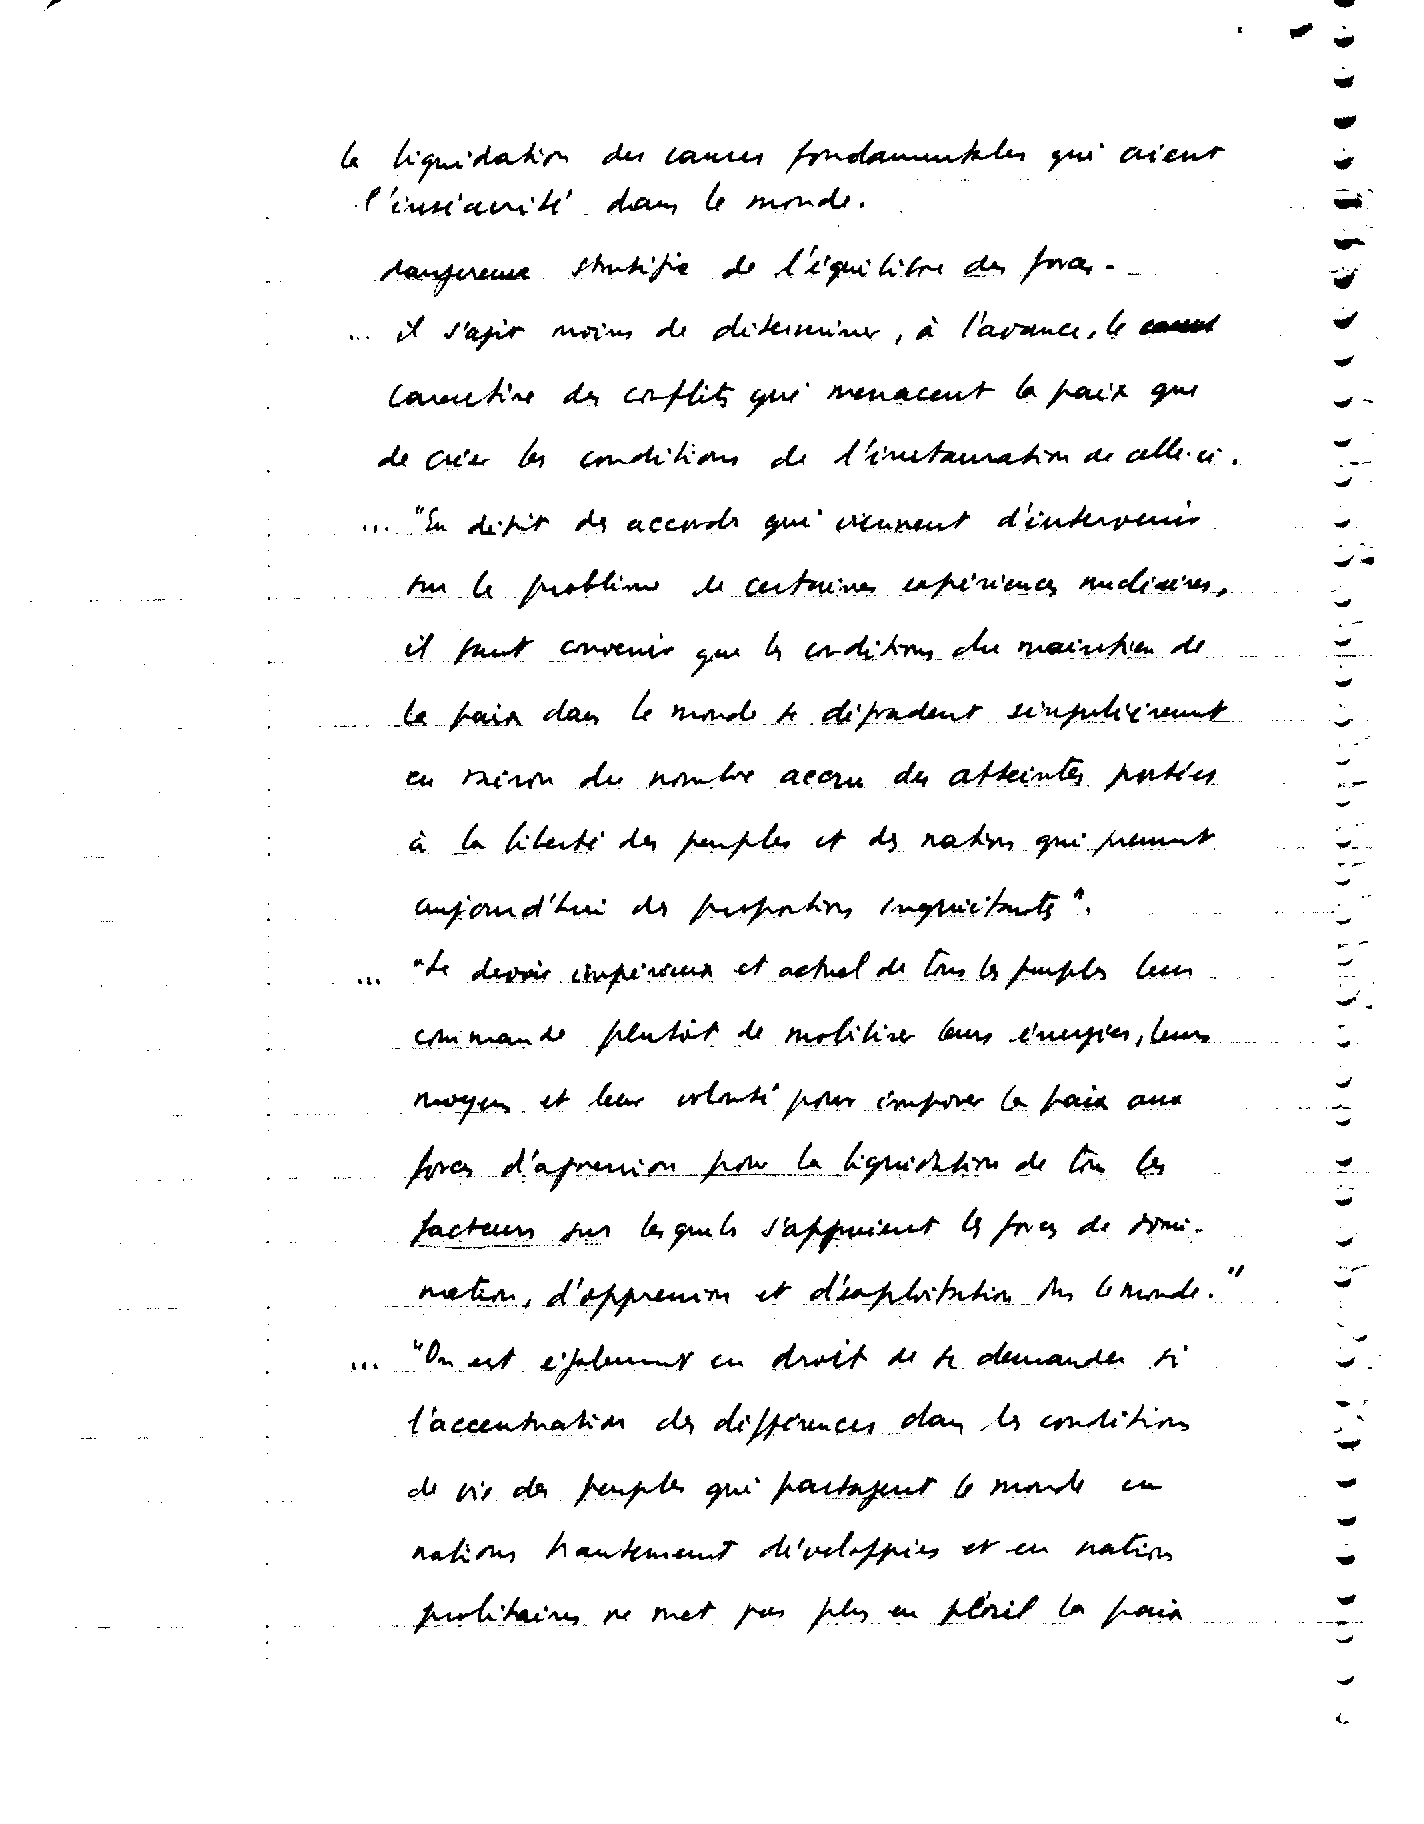 la liquidation des causes fondamentales qui créent
l'insécurité dans le monde.
dangereuse stratégie de l'équilibre des forces.
... il s'agit moins de déterminer, à l'avance, le
caractère des conflits qui menacent la paix que
de créer les conditions de l'instauration de celle-ci.
... "En dépit des accords qui viennent d'intervenir
sur le problème de certaines expériences nucléaires,
il faut convenir que les conditions du maintien de
la paix dans le monde se dégradent singulièrement
en raison du nombre accru des atteintes portées
à la liberté des peuples et des nations qui prennent
aujourd'hui des proportions inquiétantes".
... "Le devoir impérieux et actuel de tous les peuples leur
commande plutôt de mobiliser leurs énergies, leurs
moyens et leur volonté pour imposer la paix aux
forces d'agression pour la liquidation de tous les
facteurs sur lesquels s'appuient les forces de domi-
nation, d'oppression et d'exploitation ds le monde."
... "On est également en droit de se demander si
l'accentuation des différences dans les conditions
de vie des peuples qui partagent le monde en
nations hautement développées et en nations
prolétaires ne met pas plus en péril la paix